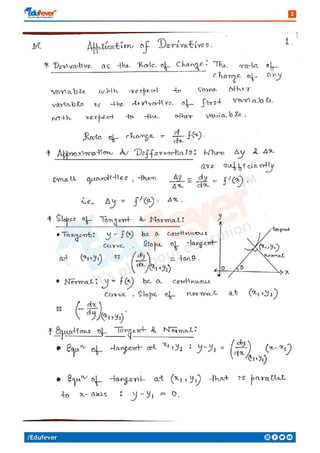 Edufever
2
M. Application of Derivatives. 1.
* Derivative as the Rate of Change: The rate of
change of any
variable with respect to some other
variable is the derivative of first variable
with respect to the other variable.
Rate of change = d/dx f(x).
* Approximation & Differentials: When Δy & Δx
are sufficiently
small quantities, then Δy/Δx ≅ dy/dx = f'(x).
i.e. Δy = f'(x). Δx.
* Slopes of Tangent & Normal:
• Tangent: y = f(x) be a continuous
curve Slope of tangent
at (x₁,y₁) is (dy/dx)(x₁,y₁) = tanθ.
y
tangent
(x₁,y₁)
normal
θ
x
• Normal: y = f(x) be a continuous
curve, slope of normal at (x₁,y₁)
is (-dx/dy)(x₁,y₁)
* Equations of Tangent & Normal:
• Equⁿ of tangent at x₁,y₁ : y-y₁ = (dy/dx)(x₁,y₁) (x-x₁)
• Equⁿ of tangent at (x₁,y₁) that is parallel
to x-axis : y-y₁ = 0.
/Edufever